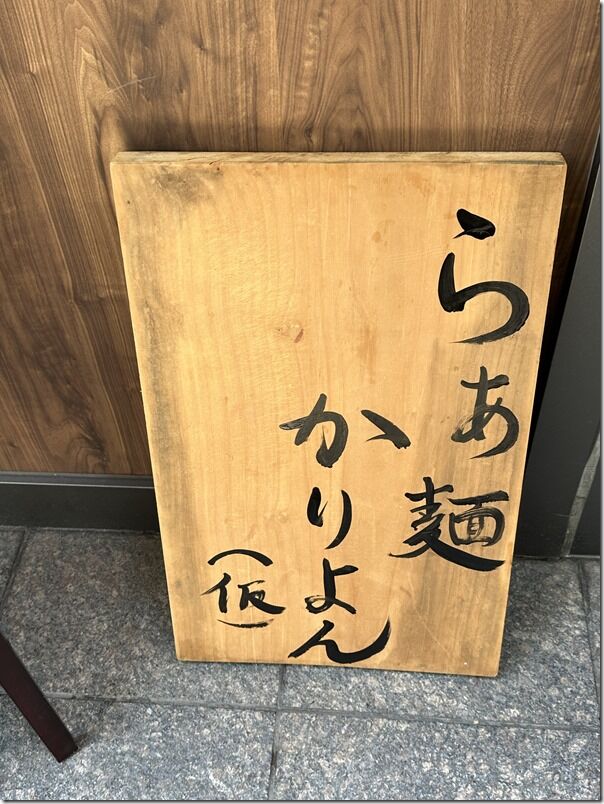 らぁ麺
かりよん
（仮）